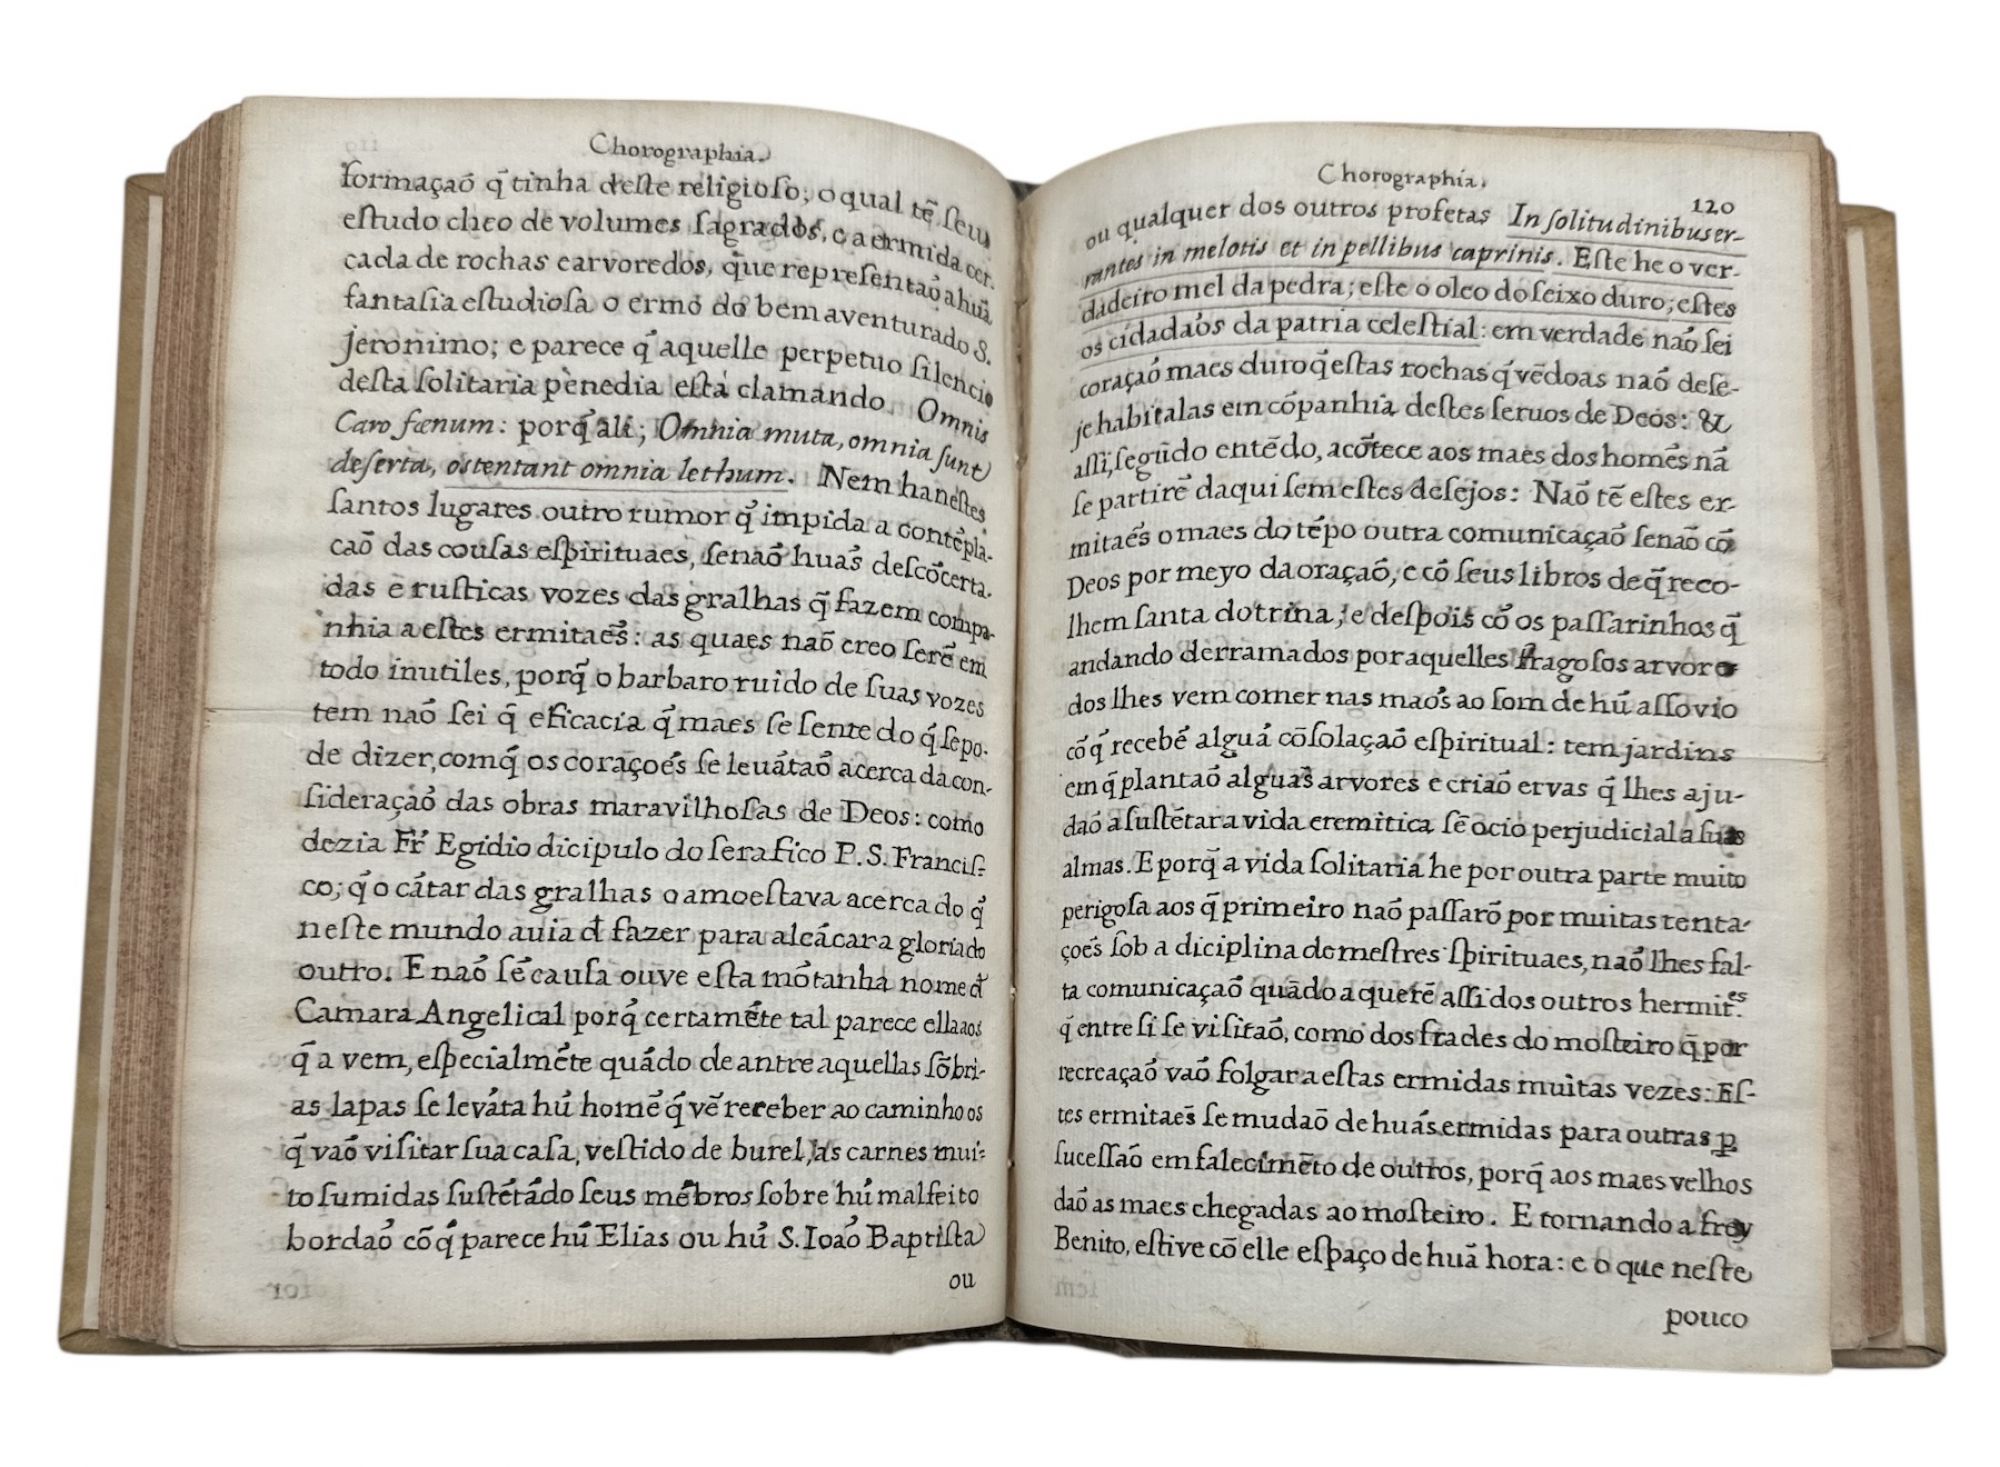 Chorographia.
formaçaõ q̃ tinha deſte religioſo; o qual tẽ ſeu
eſtudo cheo de volumes ſagrados, e a ermida cer-
cada de rochas e arvoredos, que repreſentaõ a huã
fantaſia eſtudioſa o ermo do bem aventurado S.
jeronimo; e parece q̃ aquelle perpetuo ſilencio
deſta ſolitaria penedia eſtà clamando Omnis
Caro fœnum: porq̃ ali; Omnia muta, omnia ſunt
deſerta, ostentant omnia lethum. Nem ha neſtes
ſantos lugares outro rumor q̃ impida a contẽpla-
caõ das couſas eſpirituaes, ſenaõ huãs deſcõcerta-
das e ruſticas vozes das gralhas q̃ fazem compa-
nhia a eſtes ermitaẽs: as quaes naõ creo ſerẽ em
todo inutiles, porq̃ o barbaro ruido de ſuas vozes
tem naõ ſei q̃ eficacia q̃ maes ſe ſente do q̃ ſe po-
de dizer, com q̃ os coraçoẽs ſe leuãtaõ acerca da con-
ſideraçaõ das obras maravilhoſas de Deos: como
dezia Fr̃ Egidio dicipulo do ſerafico P. S. Franciſ-
co; q̃ o cãtar das gralhas o amoeſtava acerca do q̃
neſte mundo auia đ fazer para alcãcar a gloria do
outro. E naõ ſẽ cauſa ouve eſta mõtanha nome đ
Camara Angelical porq̃ certamẽte tal parece ella aos
q̃ a vem, eſpecialmẽte quãdo de antre aquellas ſõbri-
as lapas ſe levãta hũ homẽ q̃ vẽ receber ao caminho os
q̃ vaõ viſitar ſua caſa, veſtido de burel, as carnes mui-
to ſumidas ſuſtẽtãdo ſeus mẽbros ſobre hũ mal feito
bordaõ cõ q̃ parece hũ Elias ou hũ S. Ioaõ Baptiſta
ou
Chorographia.
120
ou qualquer dos outros profetas In ſolitudinibus er-
rantes in melotis et in pellibus caprinis. Eſte he o ver-
dadeiro mel da pedra; eſte o oleo do ſeixo duro; eſtes
os cidadaõs da patria celeſtial: em verdade naõ ſei
coraçaõ maes duro q̃ eſtas rochas q̃ vẽdoas naõ deſe-
je habitalas em cõpanhia deſtes ſeruos de Deos: &
aſſi, ſegũdo entẽdo, acõtece aos maes dos homẽs nã
ſe partirẽ daqui ſem eſtes deſejos: Naõ tẽ eſtes er-
mitaẽs o maes do tẽpo outra comunicaçaõ ſenaõ cõ
Deos por meyo da oraçaõ, e cõ ſeus libros de q̃ reco-
lhem ſanta dotrina, e deſpois cõ os paſſarinhos q̃
andando derramados por aquelles fragoſos arvore
dos lhes vem comer nas maõs ao ſom de hũ aſſovio
cõ q̃ recebẽ alguã cõſolaçaõ eſpiritual: tem jardins
em q̃ plantaõ alguãs arvores e criaõ ervas q̃ lhes aju-
daõ a ſuſtẽtar a vida eremitica ſẽ ocio perjudicial a ſuas
almas. E porq̃ a vida ſolitaria he por outra parte muito
perigoſa aos q̃ primeiro naõ paſſarõ por muitas tenta-
çoẽs ſob a diciplina de meſtres ſpirituaes, naõ lhes fal-
ta comunicaçaõ quãdo a querẽ aſſi dos outros hermit.es
q̃ entre ſi ſe viſitaõ, como dos frades do moſteiro q̃ por
recreaçaõ vaõ folgar a eſtas ermidas muitas vezes: Eſ-
tes ermitaẽs ſe mudaõ de huãs ermidas para outras ꝑ
ſuceſſaõ em falecimẽto de outros, porq̃ aos maes velhos
daõ as maes chegadas ao moſteiro. E tornando a frey
Benito, eſtive cõ elle eſpaço de huã hora: e o que neſte
pouco